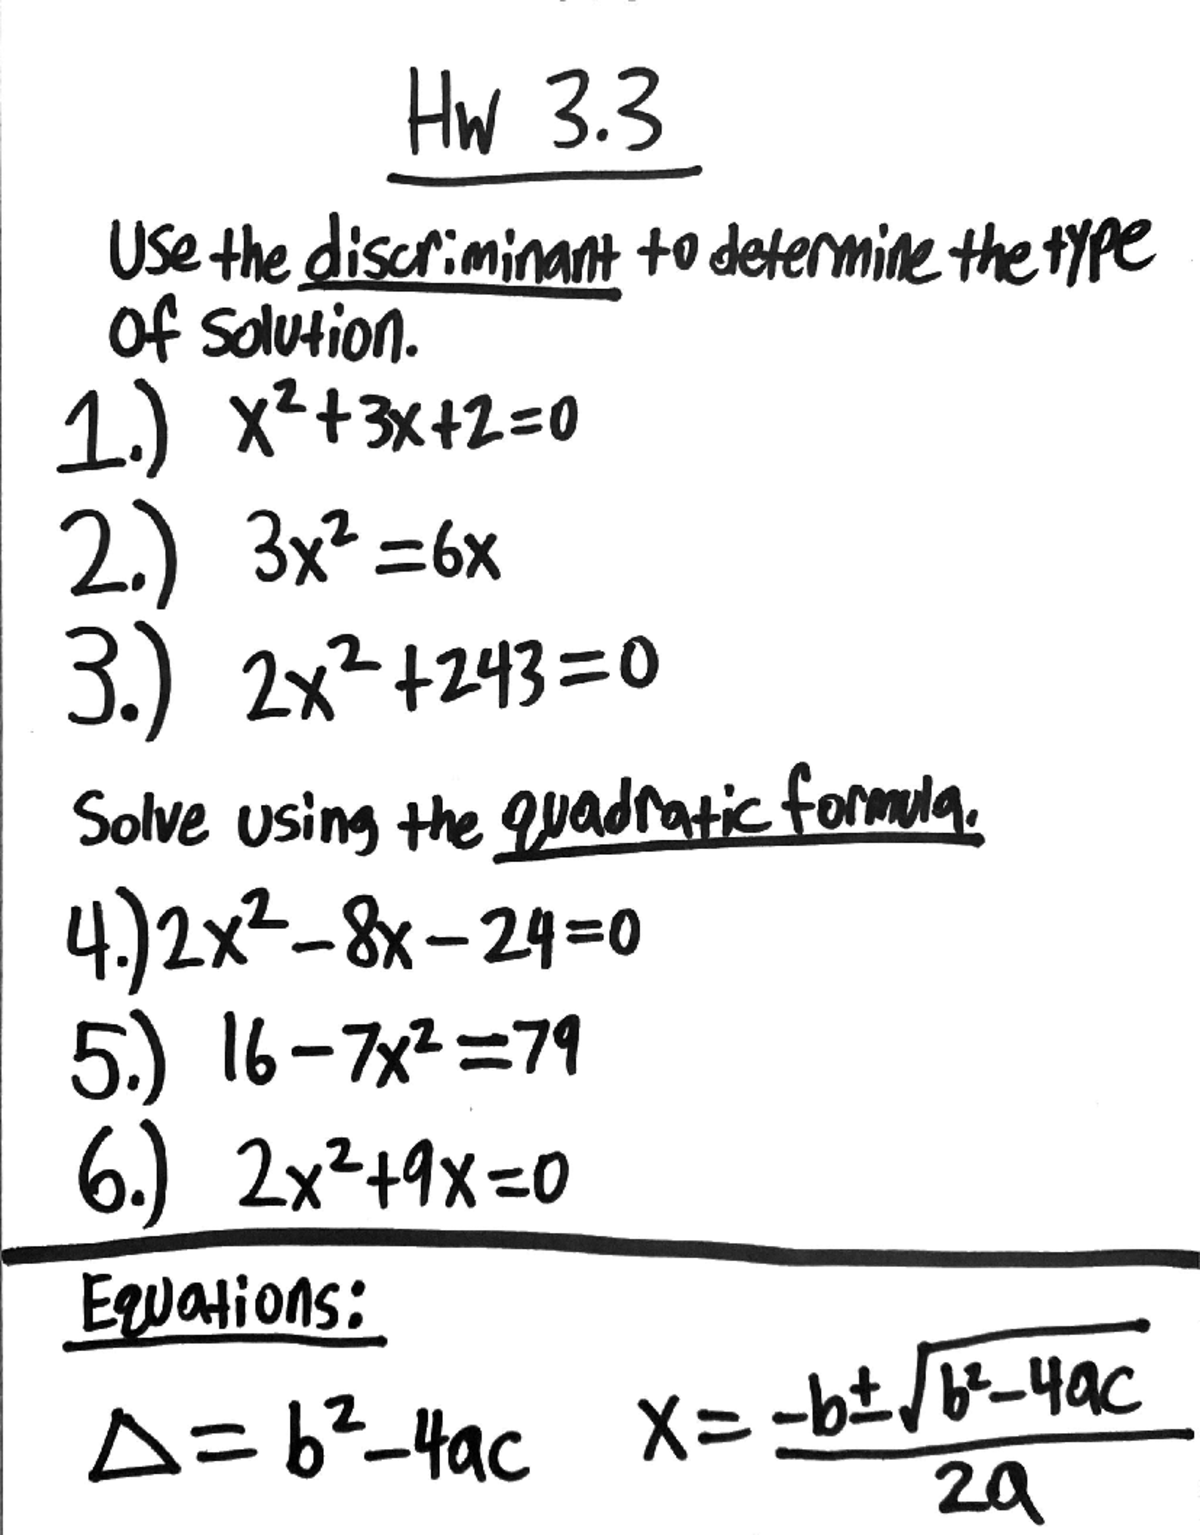 Hw 3.3
Use the discriminant to determine the type
of solution.
1.) x²+3x+2=0
2.) 3x²=6x
3.) 2x²+243=0
Solve using the quadratic formula.
4.) 2x²-8x-24=0
5.) 16-7x²=79
6.) 2x²+9x=0
Equations:
△=b²-4ac x=(-b±√(b²-4ac))/2a